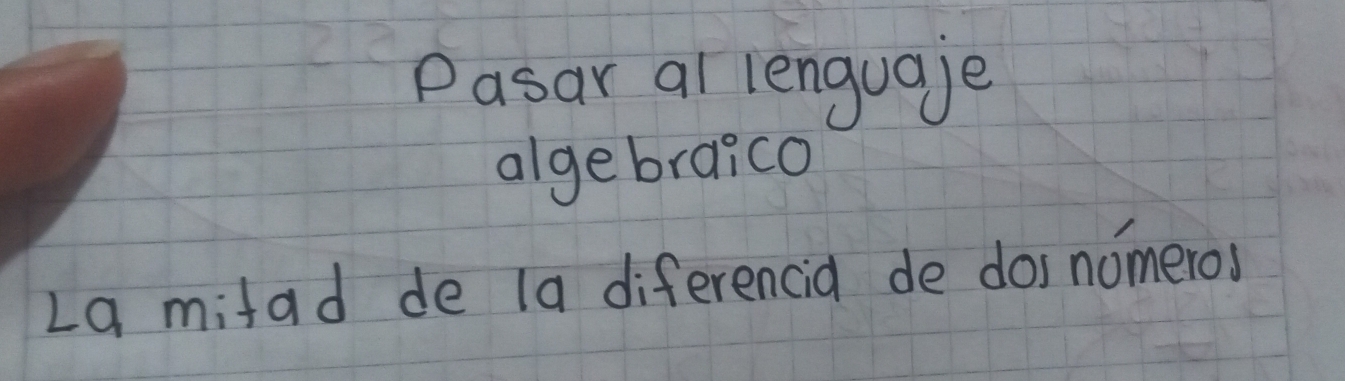 Pasar al lenguaje
algebraico
La mitad de la diferencia de dos números